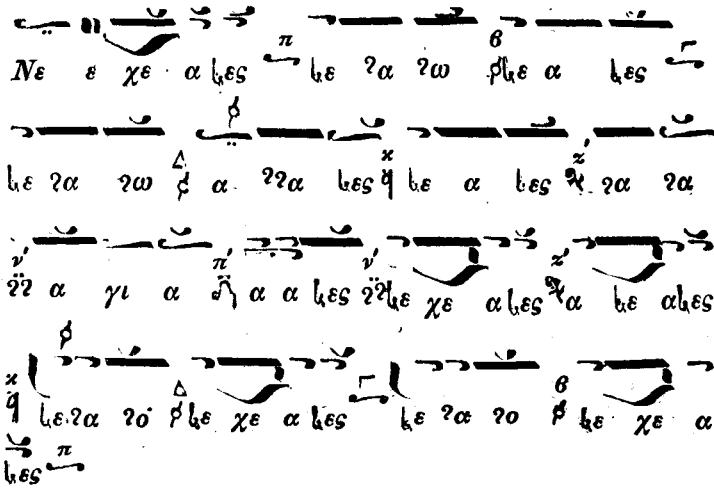 Νε ε χε α νες π νε να νω β νε α νες Γ
νε να νω Δ α ννα νες κ νε α νες ζ' να να
ν' α γι α π' α α νες ν' νε χε α νες ζ' α νε α νες
κ νε να νο Δ νε χε α νες Γ νε να νο β νε χε α
νες π